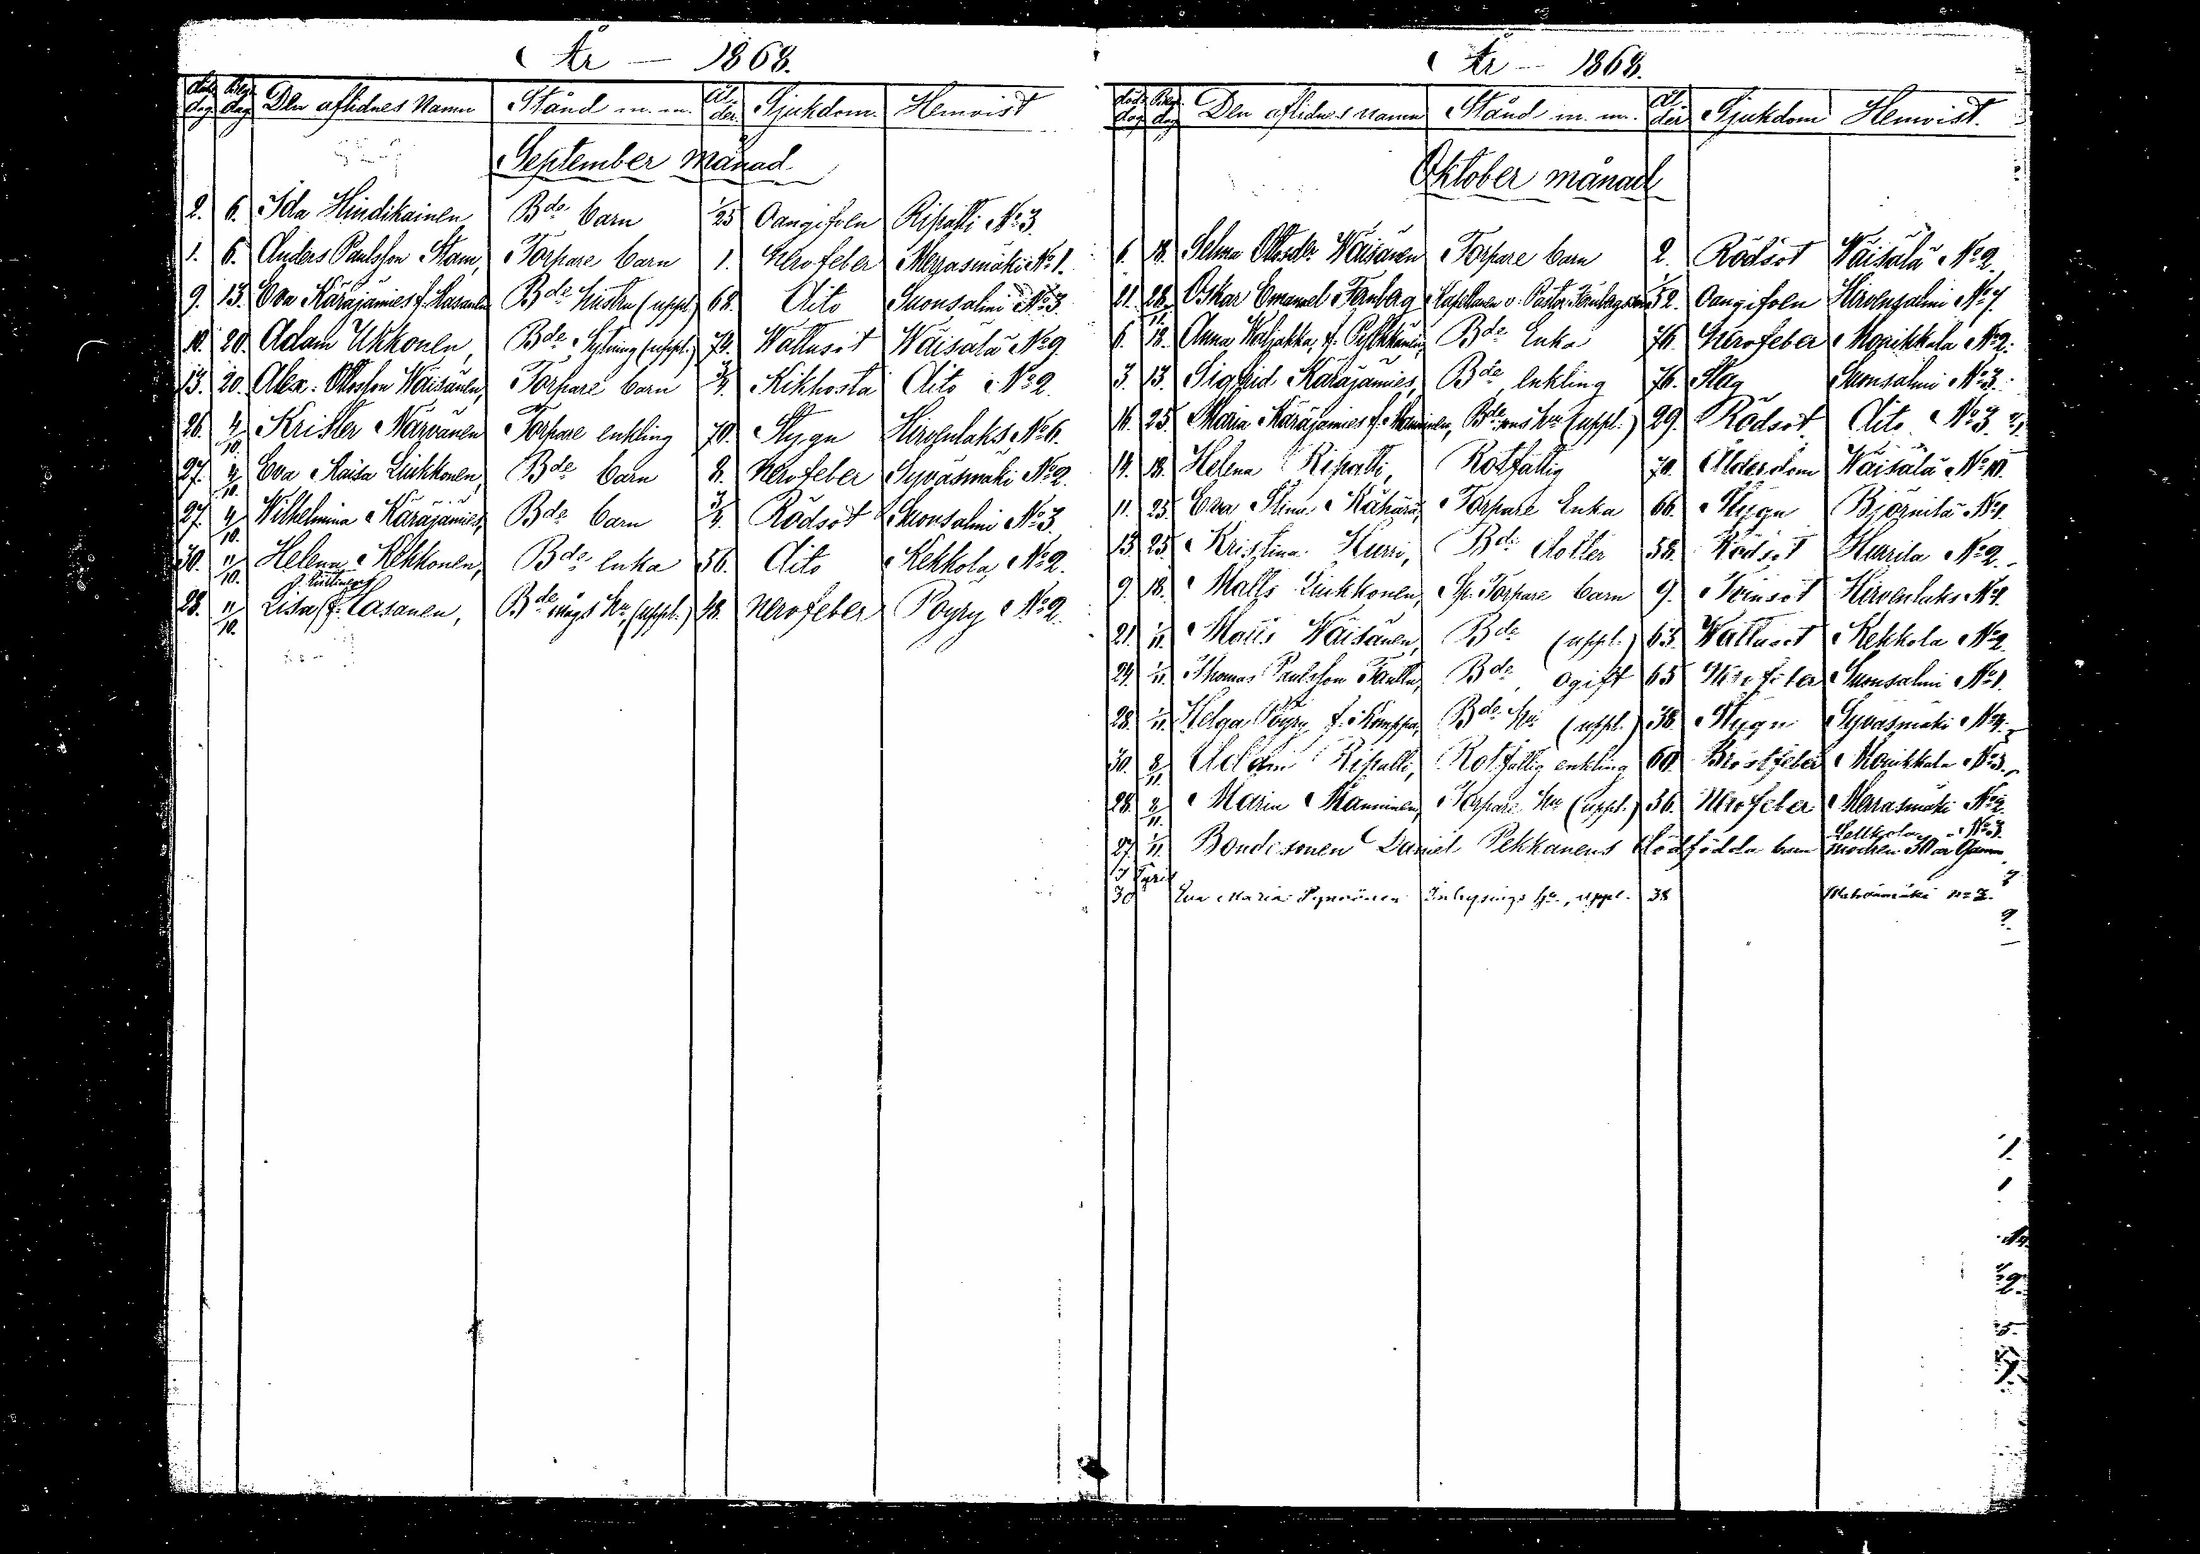 År — 1868.
Död dag Begr. dag Den aflidnes Namn Stånd m. m. Ål- der. Sjukdom. Hemvist
September månad.
2. 6. Ida Hindikainen Bde barn 1/25 Oangifven Ripatti No 3.
1. 6. Anders Paulsson Stam, Torpare barn 1. Nervfeber Merrasmäki No 1.
9. 13. Eva Käräjämies f. Bde hustru (uppl.) 68. Dito Suonsalmi No 3.
11. 20. Adam Ukkonen, Bde Sytning (uppl.) 72. Wattusot Wäisälä No 9.
13. 20. Alex. Ottosson Wäisänen, Torpare barn 3/4. Kikhosta Dito No 2.
26. 4/10. Krister Närvänen Torpare enkling 70. Stygn Hirvenlaks No 6.
27. 4/10. Eva Kaisa Liukkonen, Bde barn 2. Nervfeber Syväsmäki No 2.
27. 4/10. Wilhelmina Käräjämies, Bde barn 3/4. Rödsot Suonsalmi No 3.
30. 11/10. Helena Kekkonen, Bde enka 56. Dito Kekkola, No 2.
28. 11/10. Lisa f. Hasanen, Bde mågs hu (uppl.) 48. Nervfeber Pöyry No 2.
År — 1868.
Död dag Begr. dag Den aflidnes Namn Stånd m. m. Ål- der Sjukdom Hemvist.
Oktober månad
6. 18. Selma Ottosdr Wäisänen Torpare barn 2. Rödsot Wäisälä No 2.
21. 28. Oskar Emanuel Fernberg Kapellanen v. Pastor Fernbergs son 1/52. Oangifven Hirvensalmi No 7.
6. 18. Anna f. Bde Enka 76. Nervfeber Monikkala No 2.
3. 13. Sigfrid Käräjämies, Bde enkling 76. Slag Suonsalmi No 3.
16. 25. Maria Käräjämies f. Manninen, Bde sons hu (uppl.) 29. Rödsot. Dito No 3.
14. 18. Helena Ripatti, Rotfattig 70. Ålderdom Wäisälä No 10.
11. 25. Eva Stina Kähärä, Torpare Enka 66. Stygn Björnilä No 1.
13. 25. Kristina Hurri, Bde dotter 58. Rödsot Hurrila No 2.
9. 18. Matts Liukkonen, Sp. Torpare barn 9. Tvinsot Hirvenlaks No 1.
21. 1/11. Matts Wäisänen, Bde (uppl.) 63. Wattusot Kekkola No 2.
24. 1/11. Thomas Paulsson Bde ogift 65 Nervfeber Suonsalmi No 1.
28. 1/11. Helga Pöyry f. Komppa, Bde hu (uppl.) 38. Stygn Syväsmäki No 4.
30. 8/11. Adam Ripatti, Rotfattig enkling 60. Bröstfeber Monikkala No 3.
28. 2/11. Maria Manninen, Torpare hu (uppl.) 36. Nervfeber Merrasmäki No 2.
27. 1/11. Bondesonen Daniel Pekkanens dödfödda barn modren 30 år Gammal
30 Eva Maria Pynnönen Inhysings hu, uppl. 38 No 2.